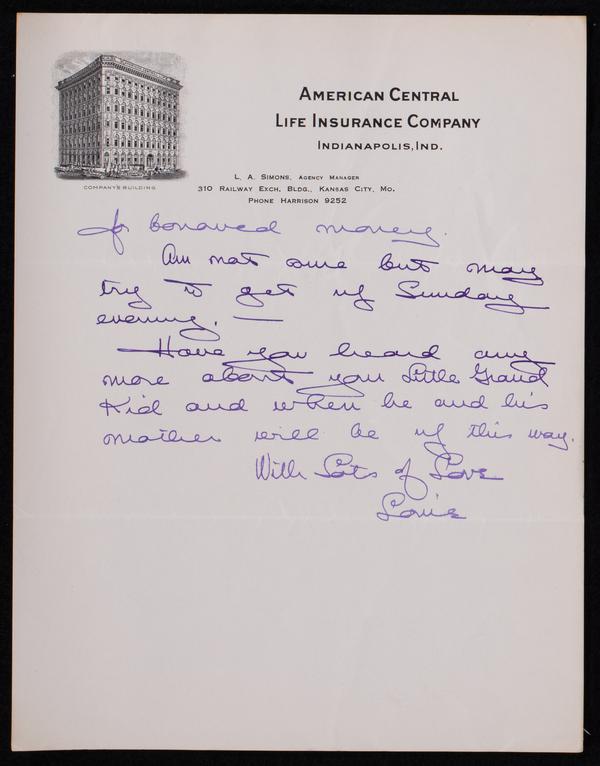 AMERICAN CENTRAL
LIFE INSURANCE COMPANY
INDIANAPOLIS, IND.
L. A. SIMONS, AGENCY MANAGER
310 RAILWAY EXCH. BLDG., KANSAS CITY, MO.
PHONE HARRISON 9252
COMPANY'S BUILDING
of borrowed money.
Am not sure but may
try to get up Sunday
evening. —
Have you heard any
more about your Little Grand
Kid and when he and his
mother will be up this way.
With Lots of Love
Louie